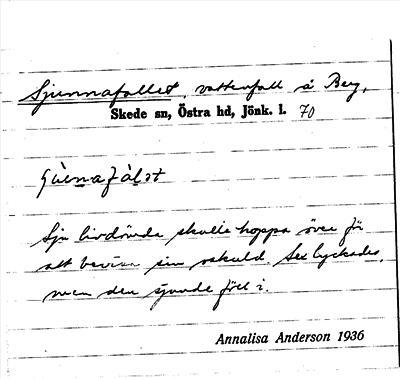 Sjunnafallet, vattenfall å Berg,
Skede sn, Östra hd, Jönk. l. 70
Sju livdömda skulle hoppa över för
att bevisa sin oskuld. Sex lyckades,
men den sjunde föll i.
Annalisa Anderson 1936